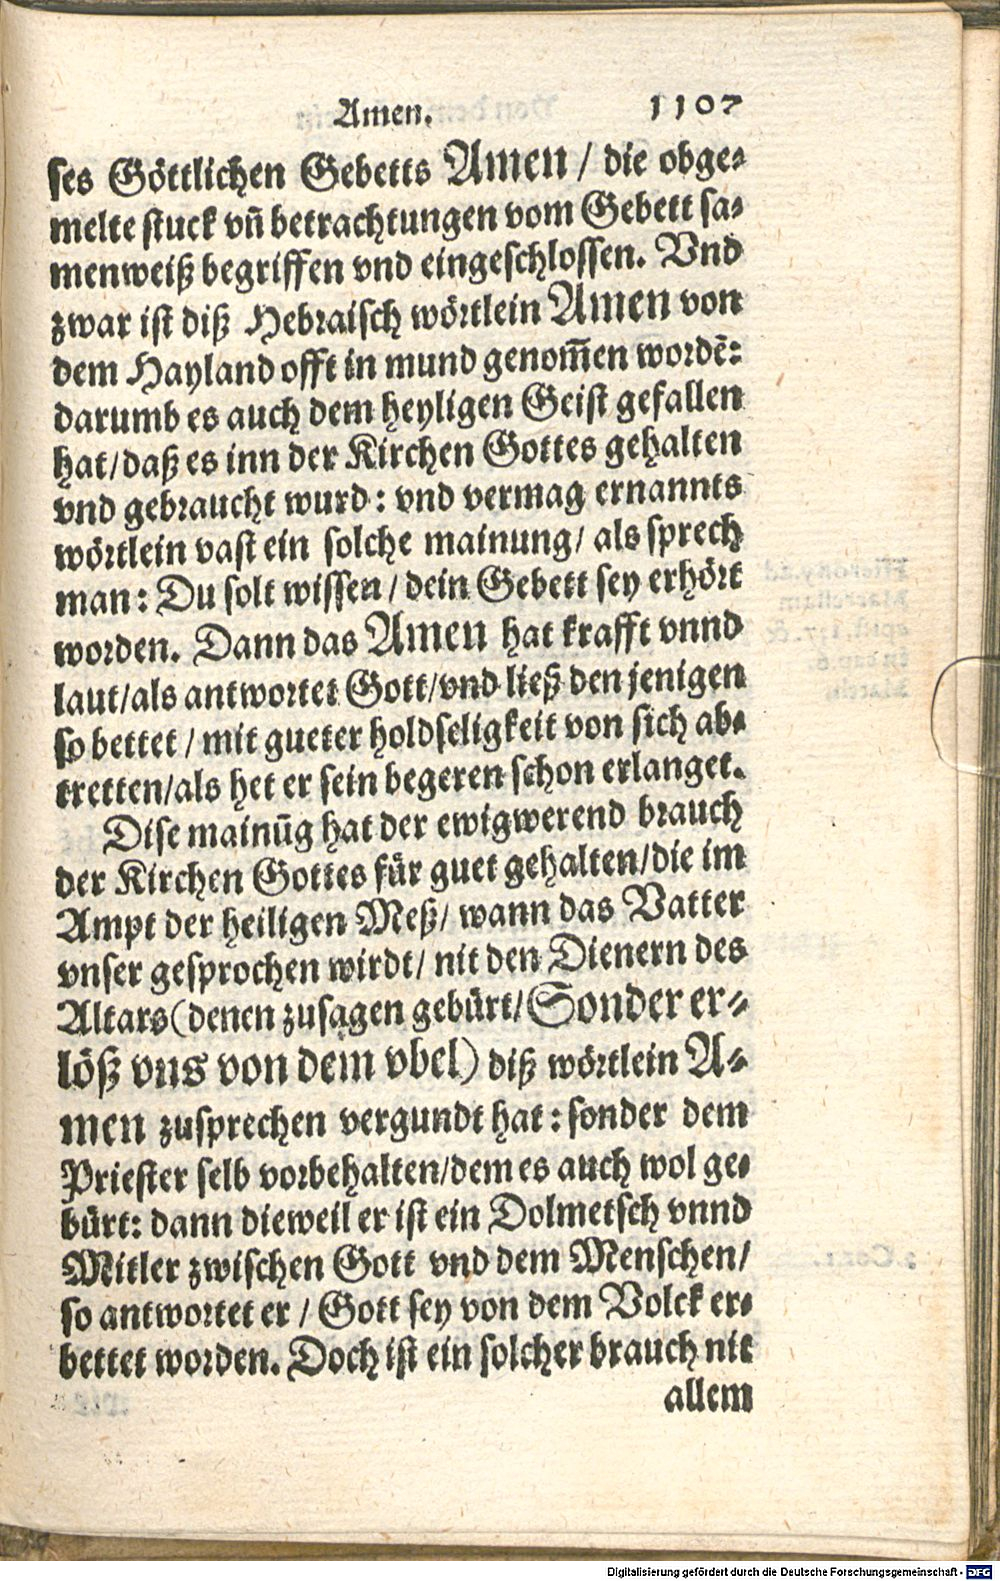 Amen. 1107
ses Göttlichen Gebetts Amen / die obge-
melte stuck vñ betrachtungen vom Gebett sa-
menweiß begriffen vnd eingeschlossen. Vnd
zwar ist diß Hebraisch wörtlein Amen von
dem Hayland offt in mund genom̃en wordẽ:
darumb es auch dem heyligen Geist gefallen
hat/daß es inn der Kirchen Gottes gehalten
vnd gebraucht wurd: vnd vermag ernannts
wörtlein vast ein solche mainung/ als sprech
man: Du solt wissen/ dein Gebett sey erhört
worden. Dann das Amen hat krafft vnnd
laut/als antwortet Gott/vnd ließ den jenigen
so bettet / mit gueter holdseligkeit von sich ab-
tretten/als het er sein begeren schon erlanget.
Dise mainũg hat der ewigwerend brauch
der Kirchen Gottes für guet gehalten/die im
Ampt der heiligen Meß/ wann das Vatter
vnser gesprochen wirdt/ nit den Dienern des
Altars (denen zusagen gebürt/ Sonder er-
löß vns von dem vbel) diß wörtlein A-
men zusprechen vergundt hat: sonder dem
Priester selb vorbehalten/dem es auch wol ge-
bürt: dann dieweil er ist ein Dolmetsch vnnd
Mitler zwischen Gott vnd dem Menschen/
so antwortet er / Gott sey von dem Volck er-
bettet worden. Doch ist ein solcher brauch nit
allem
Digitalisierung gefördert durch die Deutsche Forschungsgemeinschaft - DFG